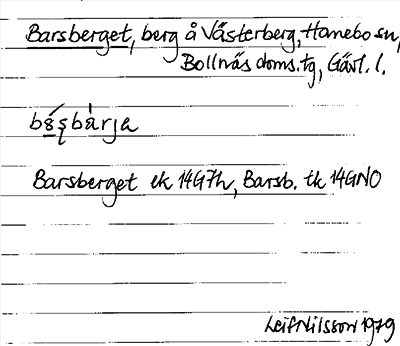 Barsberget, berg å Västerberg, Hanebo sn,
Bollnäs doms.tg, Gävl. l.
Barsberget ek 14G7h, Barsb. tk 14GNO
Leif Nilsson 1979